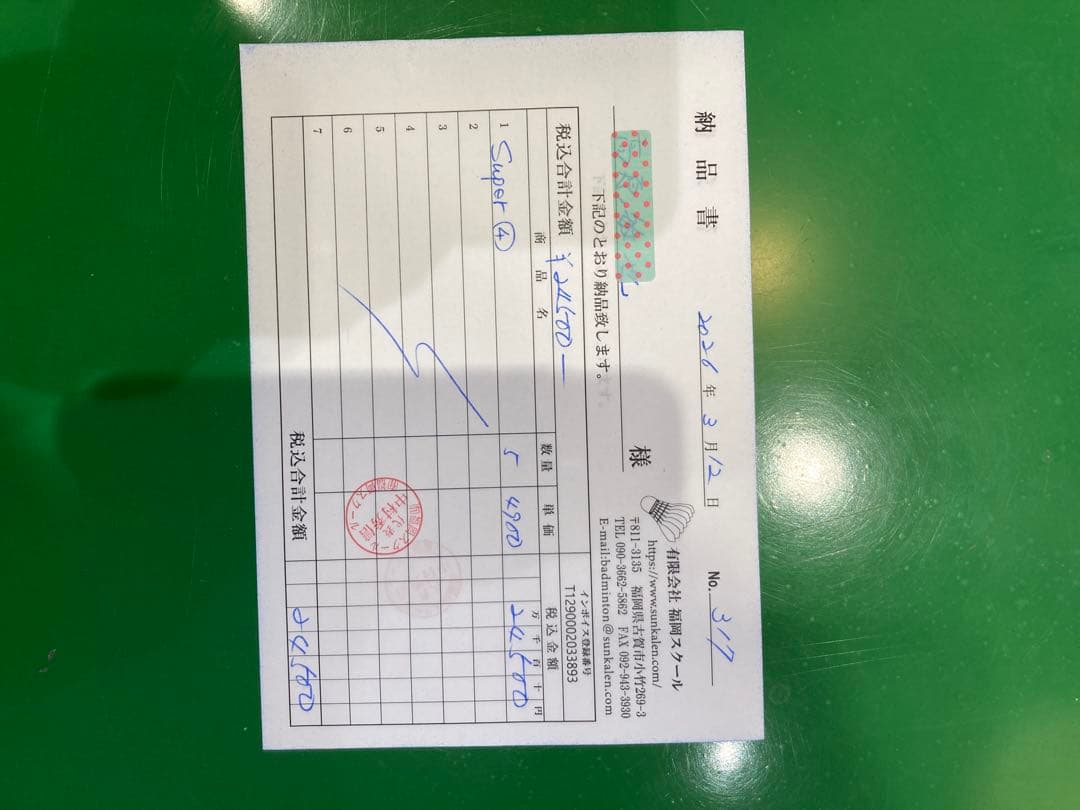 納品書
2026年3月12日
No. 317
様
下記のとおり納品致します。
有限会社 福岡スクール
https://www.sunkalen.com/
〒811-3135 福岡県古賀市小竹269-3
TEL 090-3662-5862 FAX 092-943-3930
E-mail:badminton@sunkalen.com
税込合計金額 ¥24500-
インボイス登録番号
T1290002033893
商品名 数量 単価 税込金額
万千百十円
1 Super④ 5 4900 24500
2
3
4
5
6
7
税込合計金額 24500